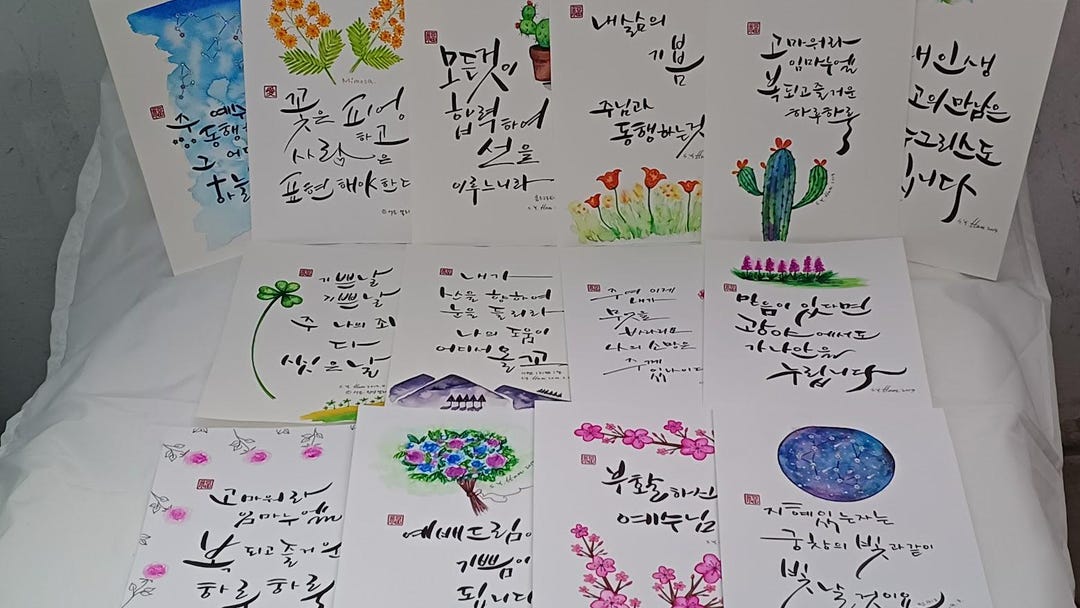 주
예수
동행
그 어
하늘
Mimosa.
꽃은 피어야
하고
사랑은
표현해야 한다
모든것이
합력하여
선을
이루느니라
내 삶의
기쁨
주님과
동행하는것
고마워라
임마누엘
복되고 즐거운
하루하루
내 인생
최고의 만남은
예수그리스도
입니다
기쁜날
기쁜날
주 나의 죄
다
씻은 날
내가
산을 향하여
눈을 들리라
나의 도움이
어디서 올꼬
주여 이제
내가
무엇을
바라리요
나의 소망은
주께
있나이다
믿음이 있다면
광야에서도
가나안을
누립니다
고마워라
임마누엘
복되고 즐거운
하루하루
예배드림이
기쁨이
됩니다
부활하신
예수님
지혜있는자는
궁창의 빛과같이
빛날것이요